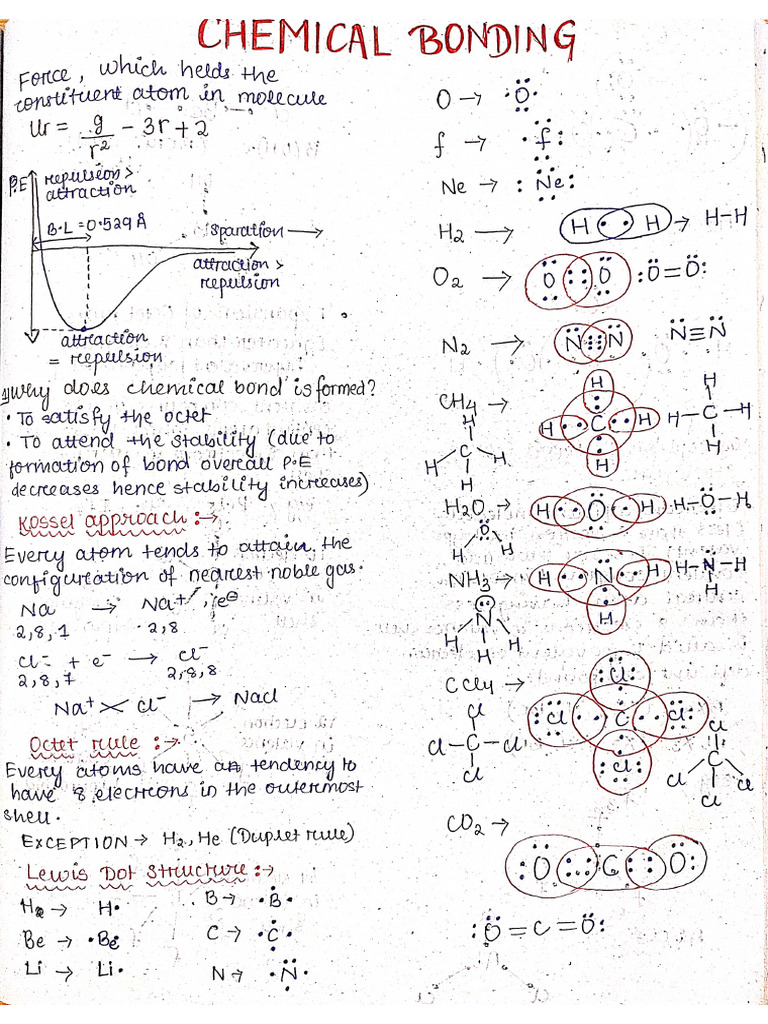 CHEMICAL BONDING
Force, which helds the
constituent atom in molecule
Ur = g/r² - 3r + 2
P.E
repulsion >
attraction
B.L = 0.529 Å
Sparation →
attraction >
repulsion
attraction
= repulsion
1) Why does chemical bond is formed?
• To satisfy the octet
• To attend the stability (due to
formation of bond overall P.E
decreases hence stability increases)
Kossel approach :→
Every atom tends to attain the
configuration of nearest noble gas.
Na → Na⁺, e⊖
2,8,1 2,8
Cl⁻ + e⁻ → Cl⁻
2,8,7 2,8,8
Na⁺ Cl⁻ → Nacl
Octet rule :→
Every atoms have an tendency to
have 8 electrons in the outermost
shell.
EXCEPTION → H₂, He (Duplet rule)
Lewis Dot Structure :→
H → H•
Be → •Be•
Li → Li•
B → •B•
C → •C•
N → •N•
O → O
f → f:
Ne → :Ne:
H₂ → H •• H → H-H
O₂ → O :: O :O=O:
N₂ → N ::: N N≡N
CH₄ →
H
H •• C •• H
H
H
H-C-H
H
H
C
H H
H
H₂O → H •• O •• H H-O-H
O
H H
NH₃ → H •• N •• H H-N-H
H H
N
H H
H
CCl₄ →
Cl
Cl •• C •• Cl
Cl
Cl
Cl-C-Cl
Cl
Cl
C
Cl Cl
Cl
CO₂ →
:O :: C :: O:
:O=C=O: